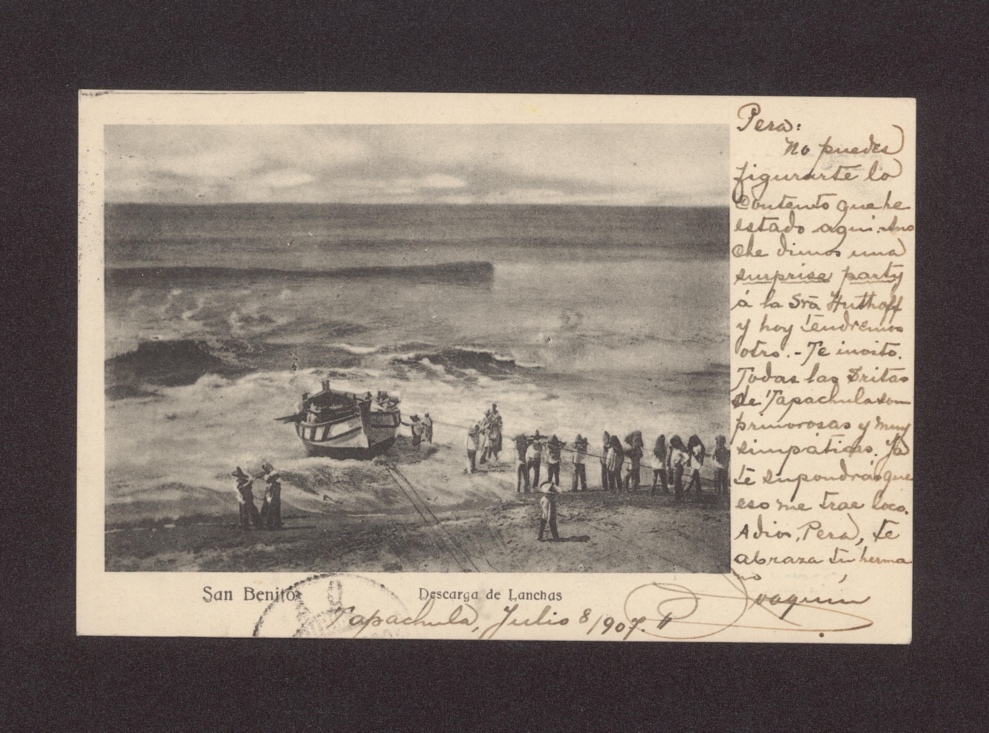 Pera:
No puedes
figurarte lo
Contento que he
estado aqui. Ano
che dimos una
surprise party
á la Sra Huthoff
y hoy tendremos
otro. - Te invito.
Todas las Sritas
de Tapachula son
primorosas y muy
simpáticas. Ya
te supondrás que
eso me trae loco.
Adios, Pera, te
abraza tu herma
no
Joaquin
San Benito
Descarga de Lanchas
Tapachula, Julio 8/907.